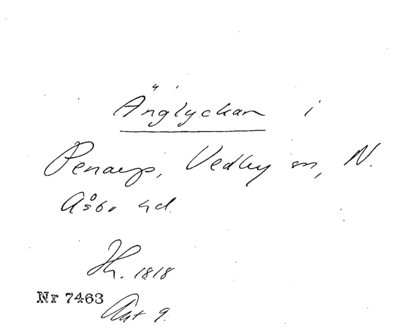 Änglyckan i
Penarp, Vedby sn, N.
Åsbo hd.
Hh. 1818
Nr 7463
Akt 9.